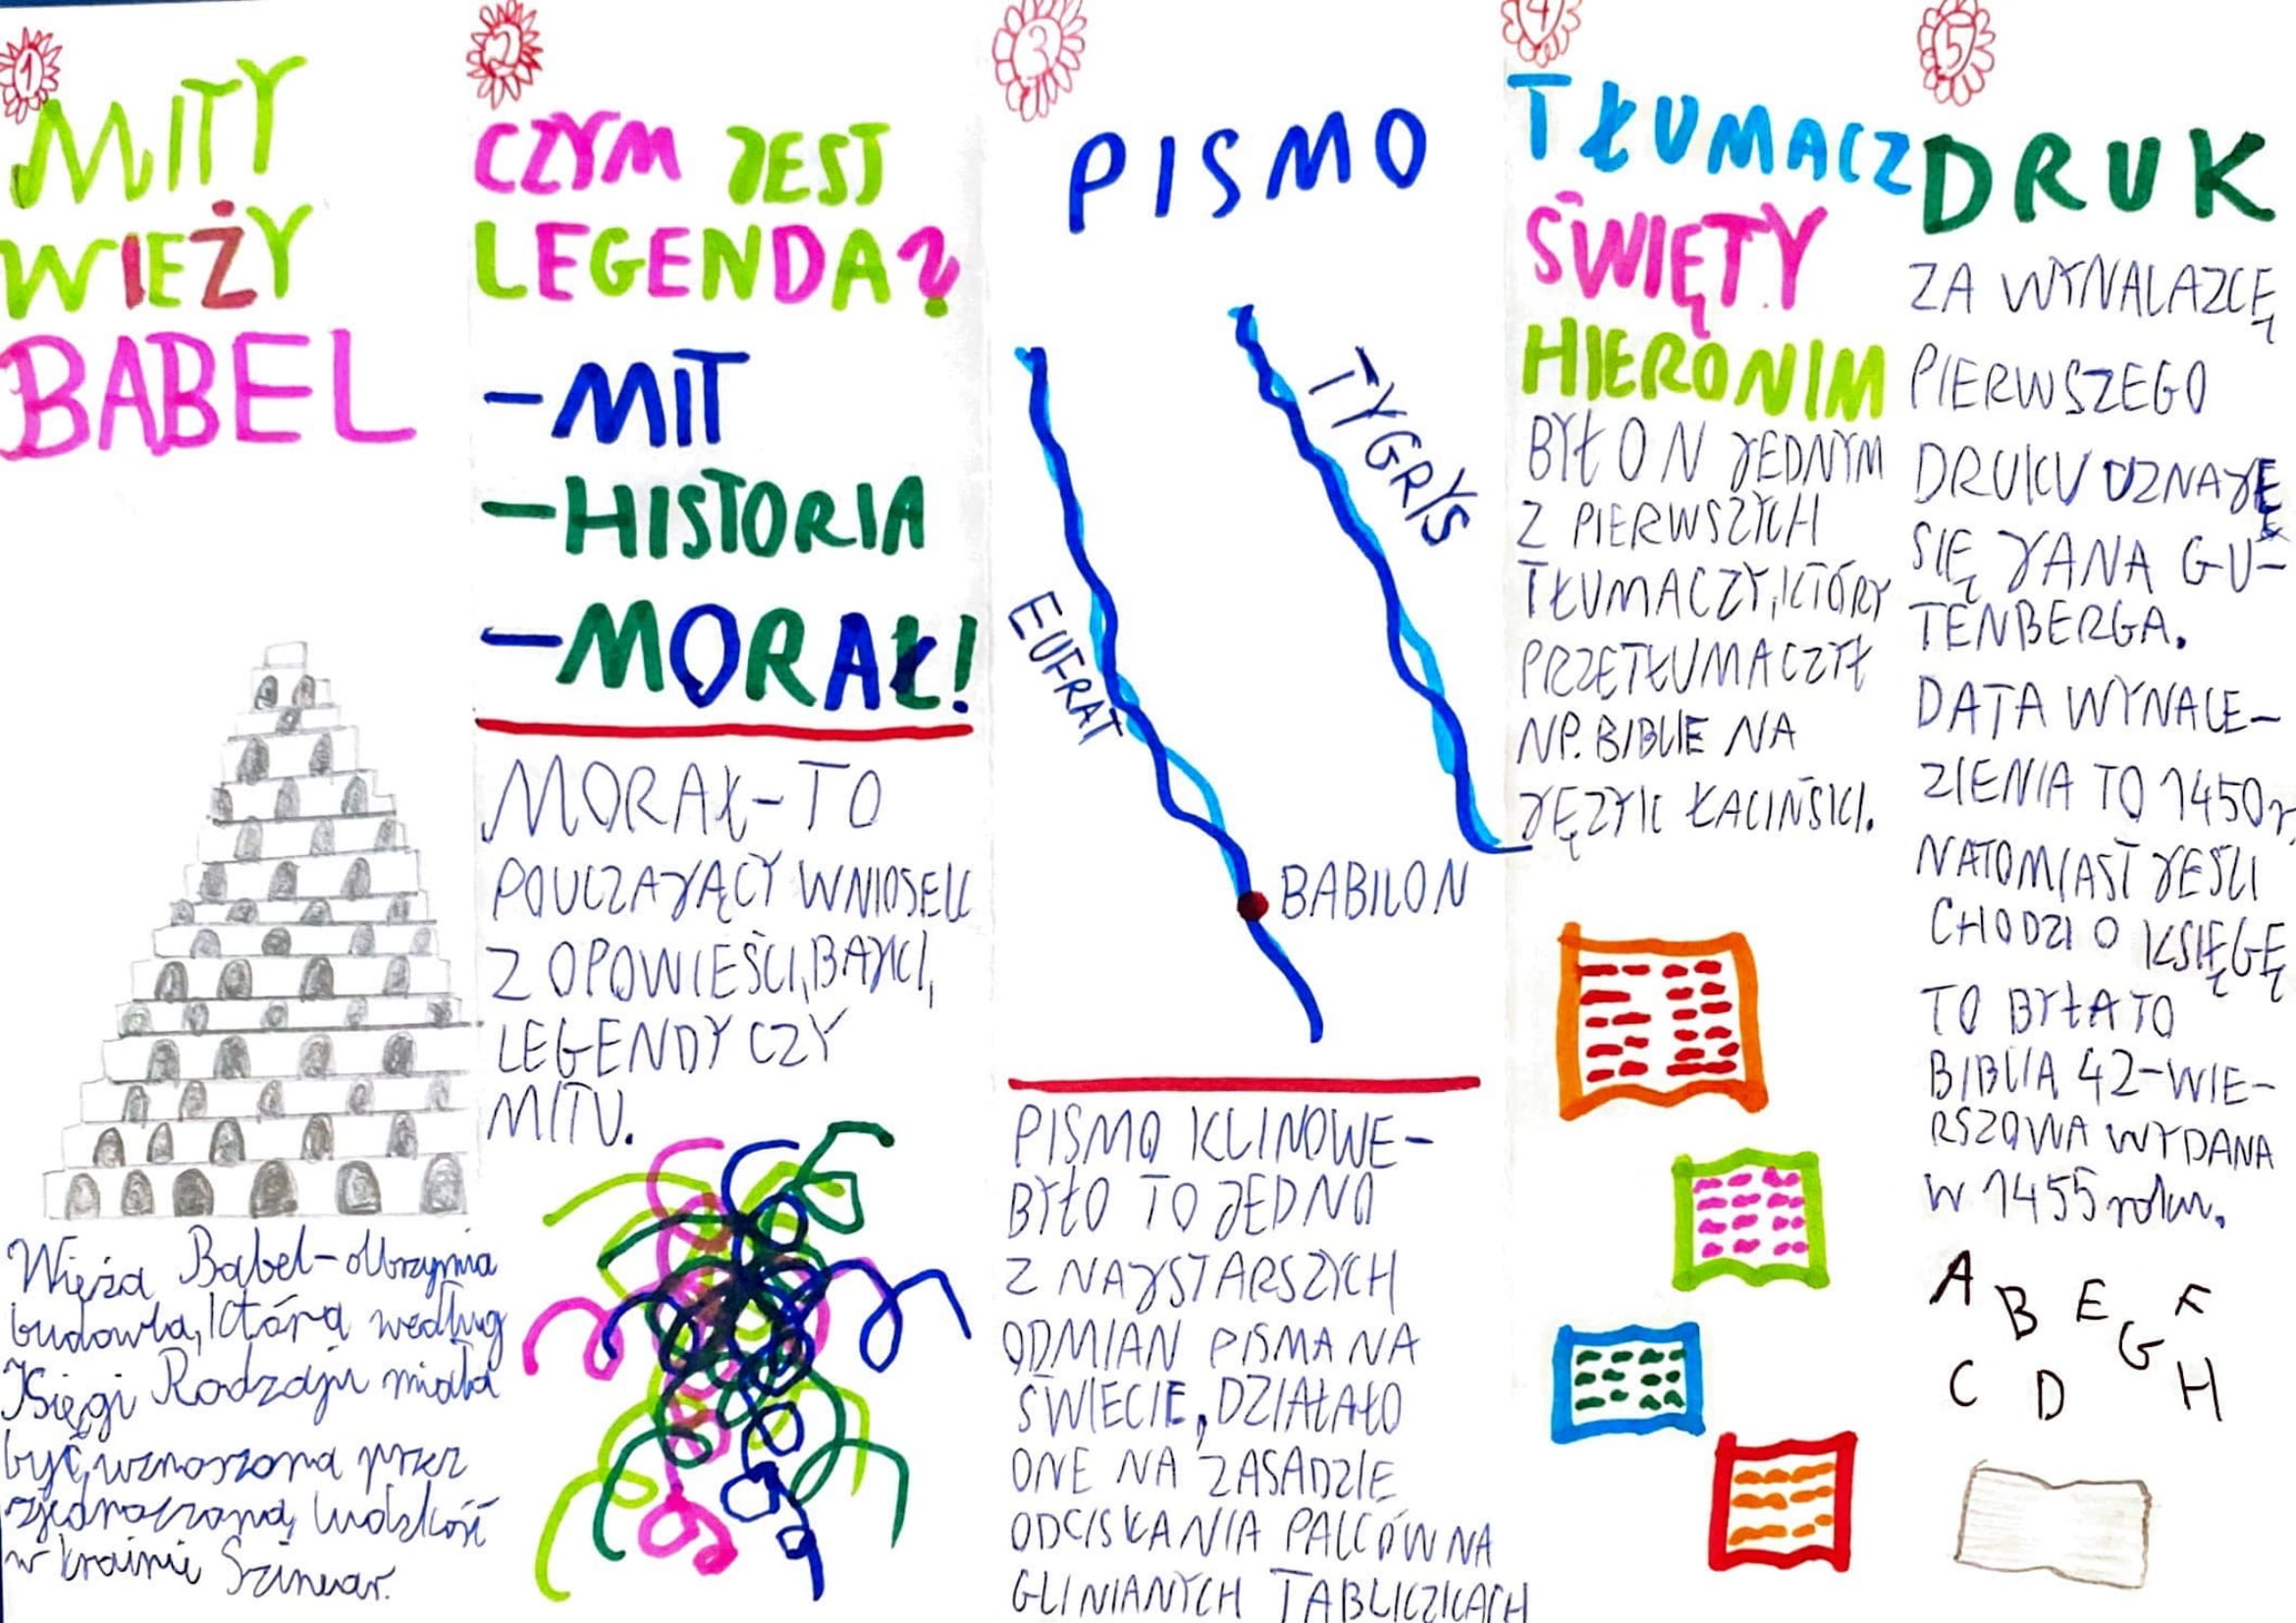 1
MITY
WIEŻY
BABEL
Wieża Babel-olbrzymia
budowla, którą według
Księgi Rodzaju miała
być, wznoszona przez
zjednoczoną ludzkość
w krainie Szinear.
2
CZYM JEST
LEGENDA?
-MIT
-HISTORIA
-MORAŁ!
MORAŁ-TO
POUCZAJĄCY WNIOSEK
Z OPOWIEŚCI, BAJKI,
LEGENDY CZY
MITU.
3
PISMO
TYGRYS
EUFRAT
BABILON
PISMO KLINOWE-
BYŁO TO JEDNO
Z NAJSTARSZYCH
ODMIAN PISMA NA
ŚWIECIE, DZIAŁAŁO
ONE NA ZASADZIE
ODCISKANIA PALCÓW NA
GLINIANYCH TABLICZKACH
4
TŁUMACZ
ŚWIĘTY
HIERONIM
BYŁ ON JEDNYM
Z PIERWSZYCH
TŁUMACZY, KTÓRY
PRZETŁUMACZYŁ
NP. BIBLIE NA
JĘZYK ŁACIŃSKI.
5
DRUK
ZA WYNALAZCĘ
PIERWSZEGO
DRUKU UZNAJE
SIĘ JANA GU-
TENBERGA.
DATA WYNALE-
ZIENIA TO 1450r,
NATOMIAST JEŚLI
CHODZI O KSIĘGĘ
TO BYŁA TO
BIBLIA 42-WIE-
RSZOWA WYDANA
W 1455 roku.
A B E F
C D G H